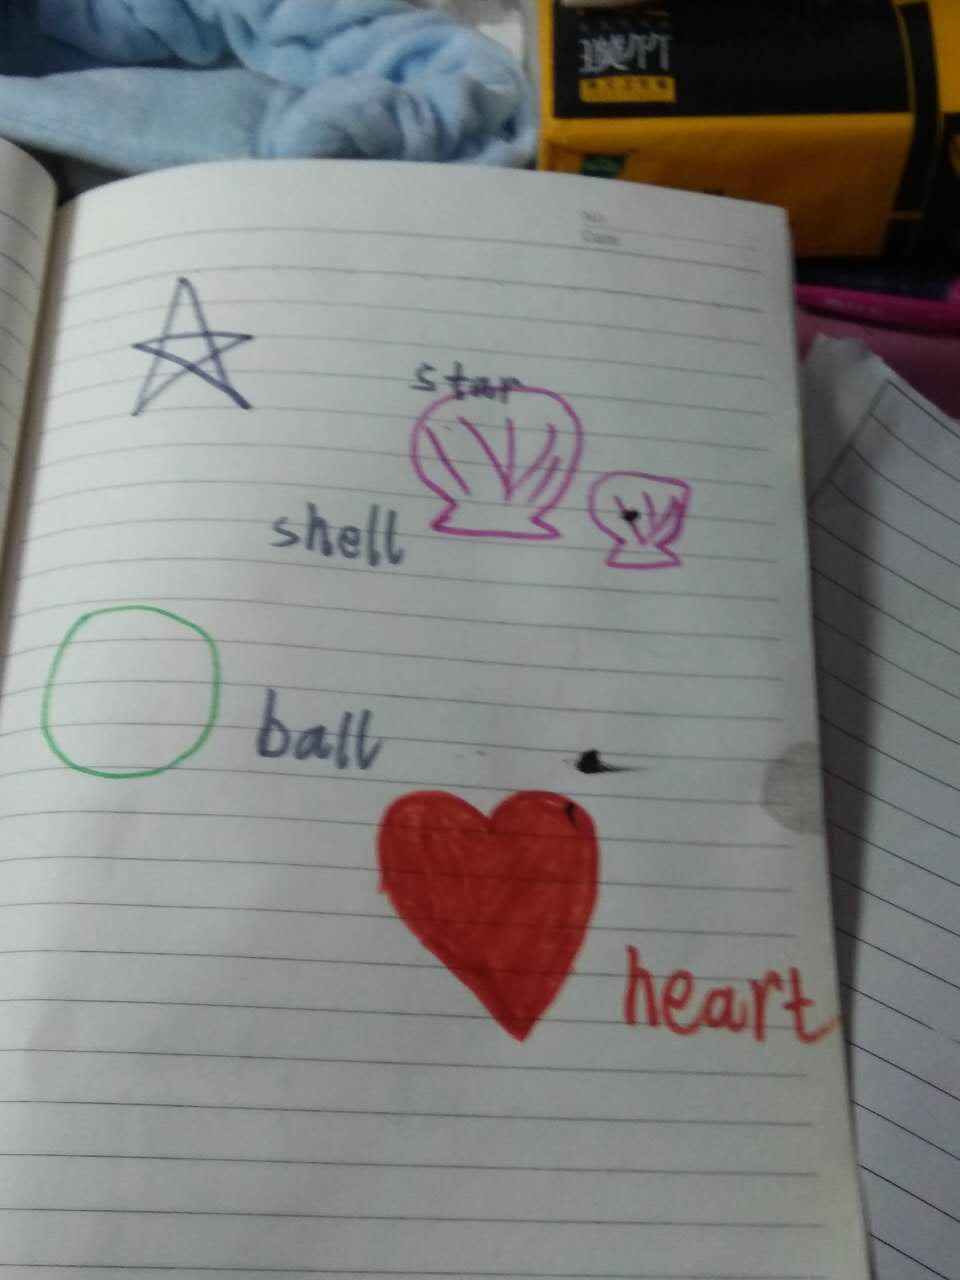 No.
Date
star
shell
ball
heart